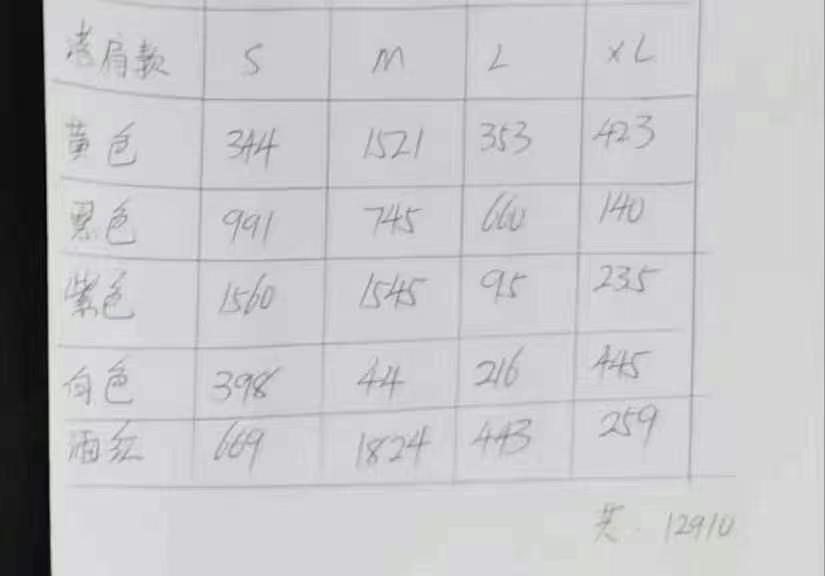 落肩款 S M L XL
黄色 344 1521 353 423
黑色 991 745 660 140
紫色 1560 1545 95 235
白色 398 44 216 445
酒红 669 1824 443 259
共. 12910